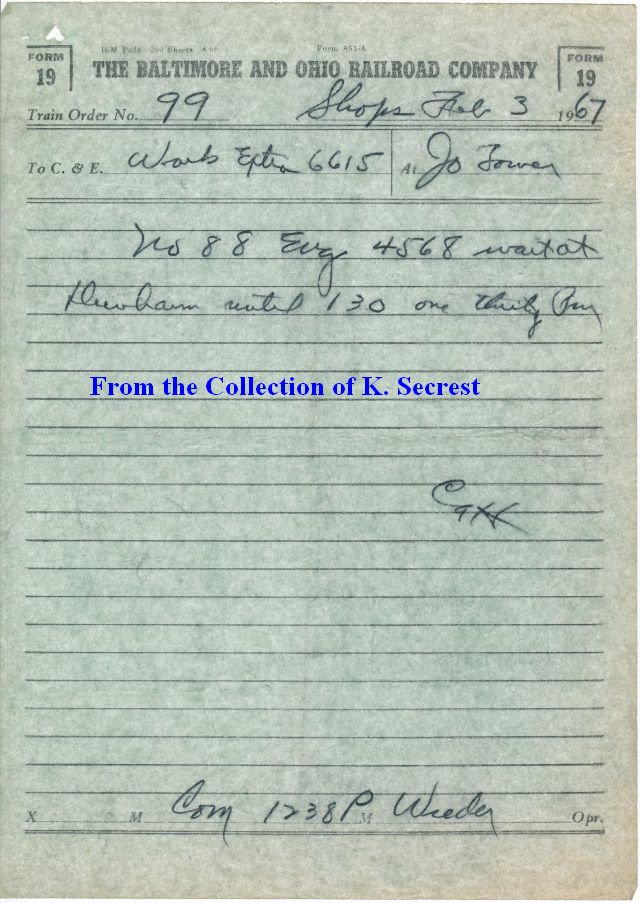 16M Pads 200 Sheets 4-66 Form 851-A
FORM 19 THE BALTIMORE AND OHIO RAILROAD COMPANY FORM 19
Train Order No. 99 Shops Feb 3 1967
To C. & E. Work Extra 6615 At Jo Tower
No 88 Eng 4568 wait at
until 130 one thirty Pm
From the Collection of K. Secrest
X M Com 1238 P M Opr.